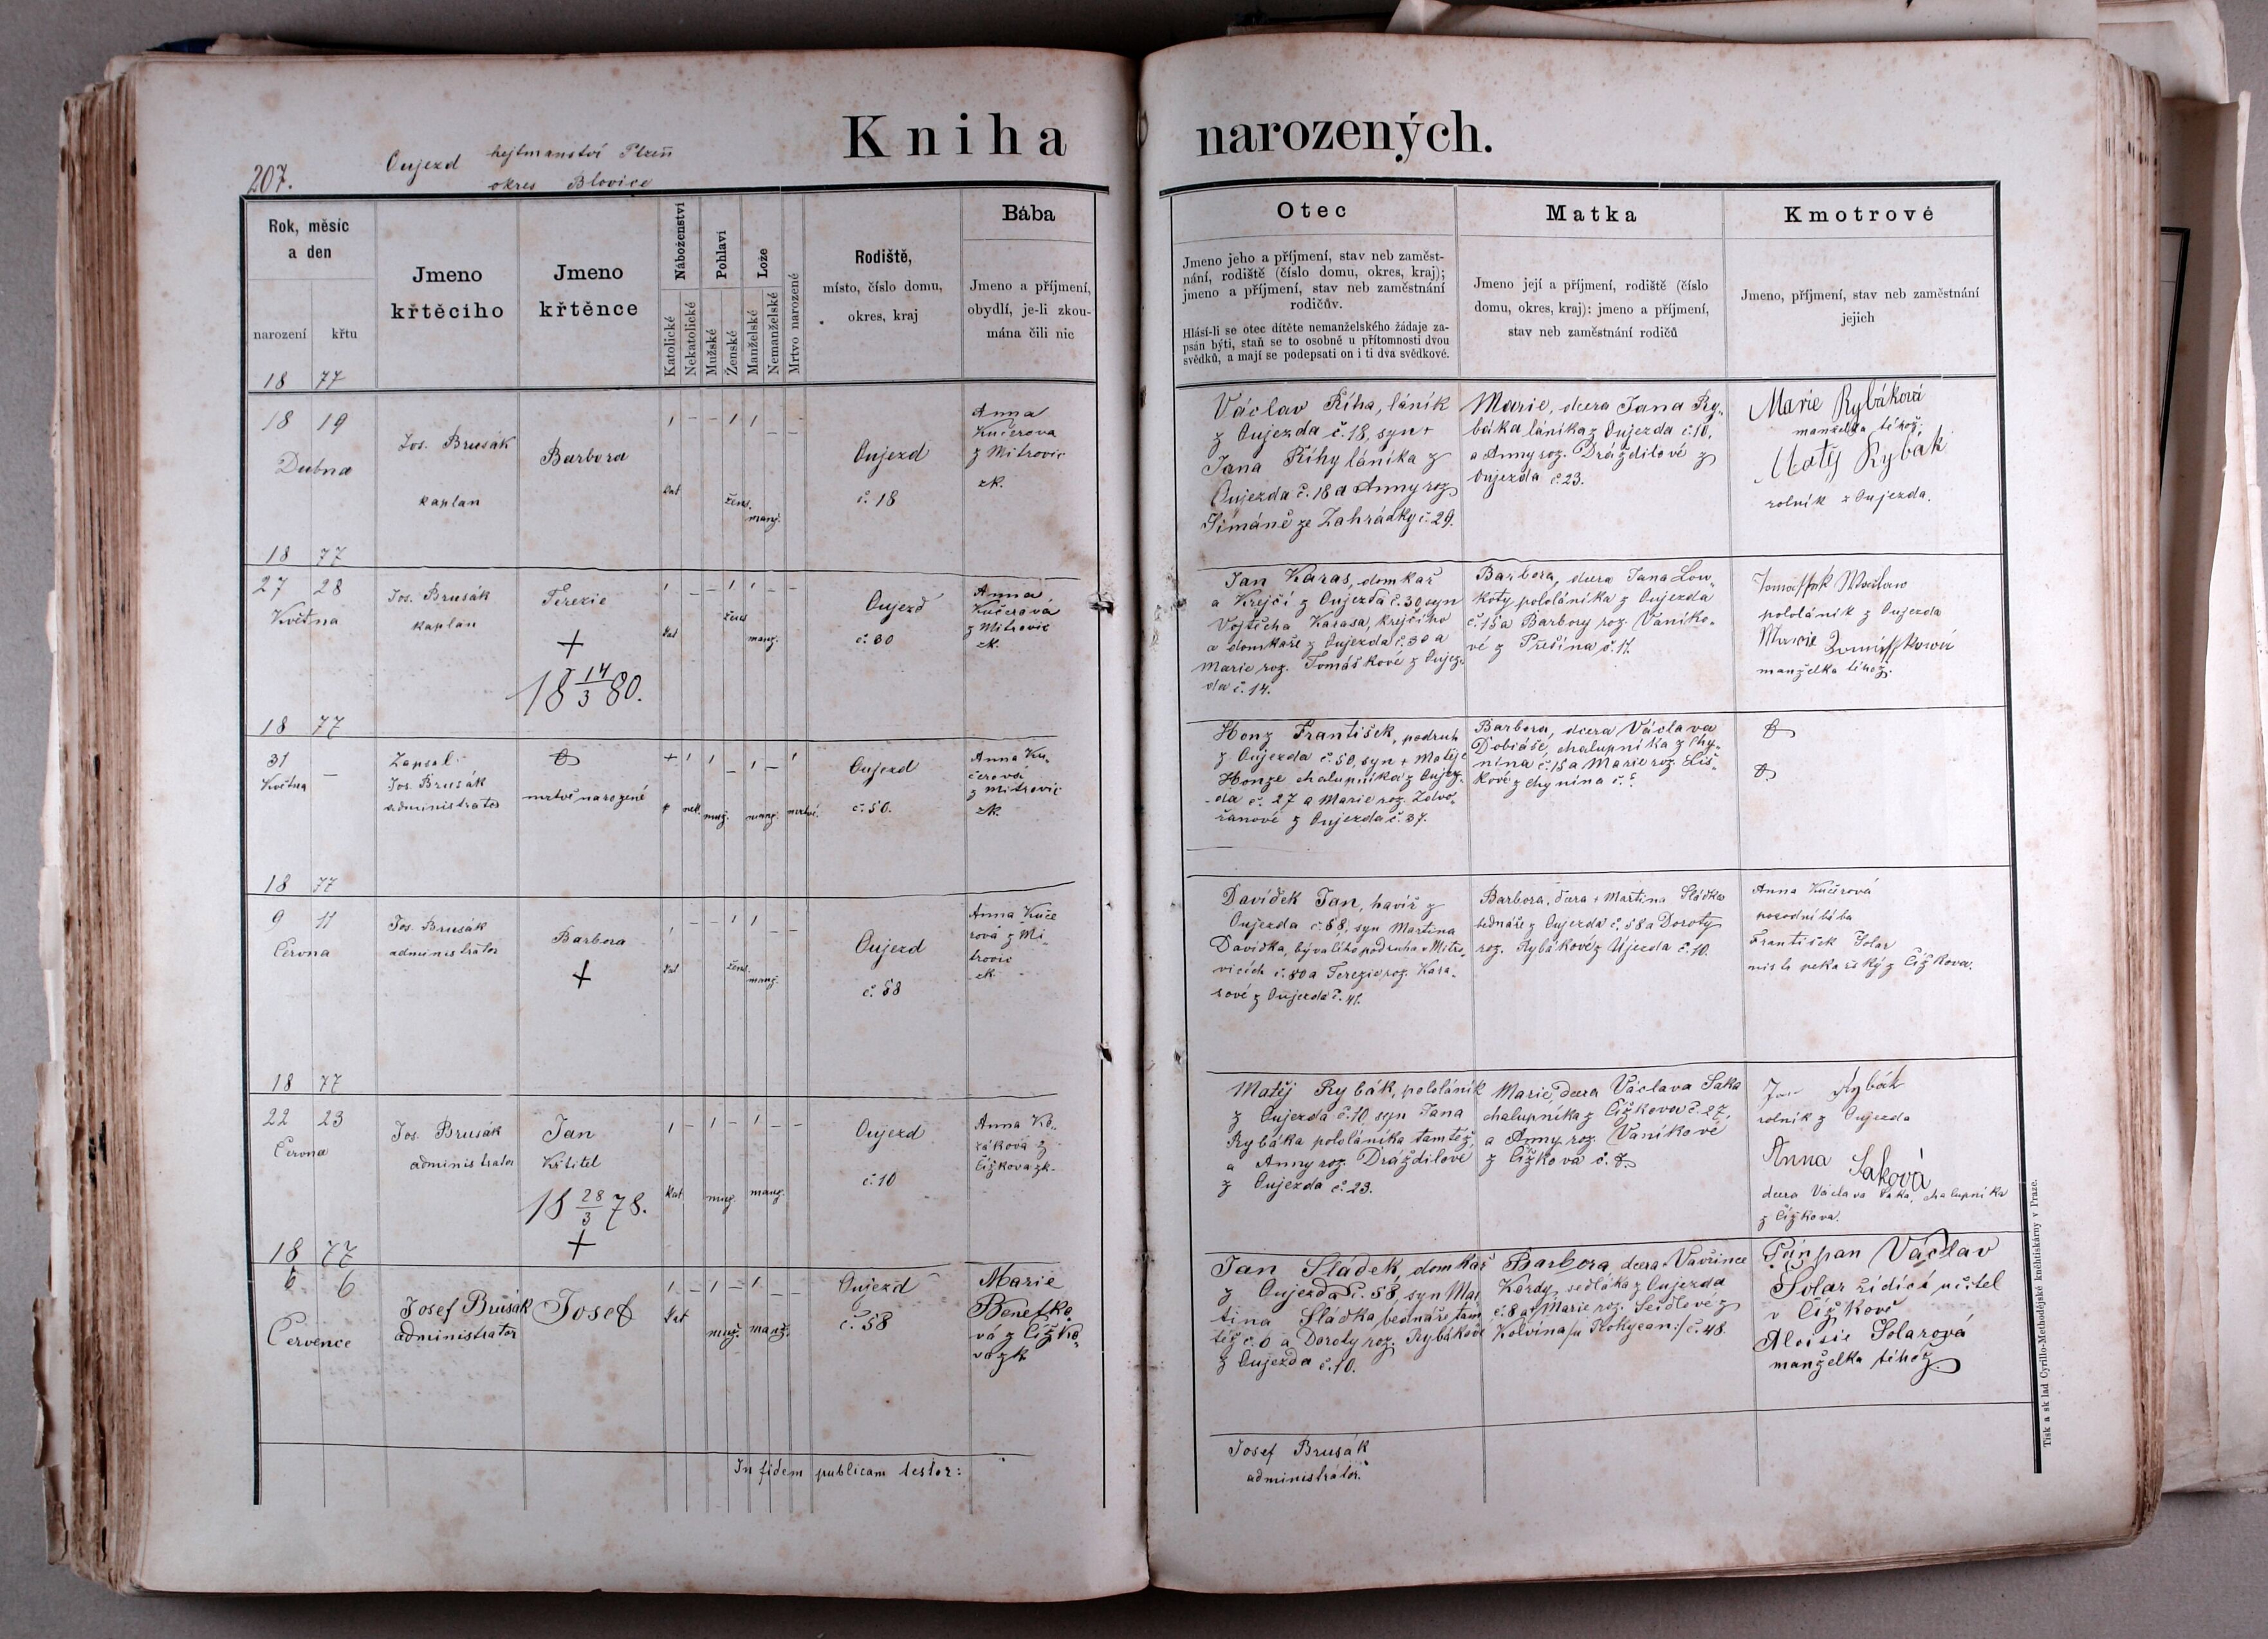 Kniha narozených.
207.
Oujezd hejtmanství Plzeň
okres Blovice
Rok, měsíc
a den
narození křtu
Jmeno
křtěcího
Jmeno
křtěnce
Náboženství
Katolické
Nekatolické
Pohlaví
Mužské
Ženské
Lože
Manželské
Nemanželské
Mrtvo narozené
Rodiště,
místo, číslo domu,
okres, kraj
Bába
Jmeno a příjmení,
obydlí, je-li zkou-
mána čili nic
Otec
Jmeno jeho a příjmení, stav neb zaměst-
nání, rodiště (číslo domu, okres, kraj);
jmeno a příjmení, stav neb zaměstnání
rodičův.
Hlásí-li se otec dítěte nemanželského žádaje za-
psán býti, staň se to osobně u přítomnosti dvou
svědků, a mají se podepsati on i ti dva svědkové.
Matka
Jmeno její a příjmení, rodiště (číslo
domu, okres, kraj): jmeno a příjmení,
stav neb zaměstnání rodičů
Kmotrové
Jmeno, příjmení, stav neb zaměstnání
jejich
18 77
18 19
Dubna
Jos. Brusák
kaplan
Barbora
kat
žens.
manž.
Oujezd
č. 18
Anna
Kučerova
z Mitrovic
zk.
Václav Říha, láník
z Oujezda č. 18, syn +
Jana Říhy láníka z
Oujezda č. 18 a Anny roz
Šimáně ze Zahrádky č. 29.
Marie, dcera Jana Ry-
báka láníka z Oujezda č. 10,
a Anny roz. Dráždilové z
Oujezda č 23.
Marie Rybáková
manželka téhož.
Matěj Rybák
rolník z Oujezda.
18 77
27 28
Května
Jos. Brusák
kaplan
Terezie
+
18 14/3 80.
kat
žens
manž.
Oujezd
č. 30
Anna
Kučerová
z Mitrovic
zk.
Jan Karas, domkař
a Krejčí z Oujezda č. 30, syn
Vojtěcha Karasa, krejčího
a domkaře z Oujezda č. 30 a
Marie roz. Tomáškové z Oujez-
da č. 14.
Barbora, dcera Jana Lou-
koty pololáníka z Oujezda
č. 15 a Barbory roz. Váníko-
vé z Přešína č. 11.
Václav
pololáník z Oujezda
Marie
manželka téhož.
18 77
31 —
Května
Zapsal:
Jos. Brusák
administrator
mrtvě narozené
nek.
muž.
manž.
mrtvé.
Oujezd
č. 50.
Anna Ku-
čerová
z Mitrovic
zk.
Honz František, podruh
z Oujezda č. 50, syn + Matěje
Honze chalupníka z Oujez-
da č. 27 a Marie roz. Zdvo-
řanové z Oujezda č. 37.
Barbora, dcera Václava
Dobiáše, chalupníka z Chy-
nína č. 15 a Marie roz. Liš-
kové z Chynína č. ?
18 77
9 11
Června
Jos. Brusák
administrator
Barbora
+
kat
žens.
manž.
Oujezd
č. 58
Anna Kuče
rová z Mi-
trovic
zk
Davídek Jan, havíř z
Oujezda č. 58, syn Martina
Davídka, bývalého podruha v Mitro-
vicích č. 80 a Terezie roz. Kara-
sové z Oujezda č. 41.
Barbora, dcera + Martina Sládka
bednáře z Oujezda č. 58 a Doroty
roz. Rybákové z Újezda č. 10.
Anna Kučerová
porodní bába
František Solar
mistr pekařský z Čížkova.
18 77
22 23
Června
Jos. Brusák
administrator
Jan
Křtitel
18 28/3 78.
+
kat
muž.
manž.
Oujezd
č. 10
Anna Ko-
záková z
Čížkova zk.
Matěj Rybák, pololáník
z Oujezda č. 10, syn Jana
Rybáka pololáníka tamtéž
a Anny roz. Dráždilové
z Oujezda č. 23.
Marie, dcera Václava Saka
chalupníka z Čížkova č. 27,
a Anny roz. Vaníkové
z Čížkova č. 7.
Rybák
rolník z Oujezda
Anna Saková
dcera Václava Saka, chalupníka
z Čížkova.
18 77
6 6
Července
Josef Brusák
administrator
Josef
kat
muž.
manž.
Oujezd
č. 58
Marie
Beneško-
vá z Čížko-
va zk
Jan Sládek, domkář
z Oujezda č. 58, syn Mar
tina Sládka, bednáře tam
též č. 0 a Doroty roz. Rybákové
z Oujezda č. 10.
Barbora dcera + Vavřince
Kordy, sedláka z Oujezda
č. 8 a Marie roz. Seidlové z
Kolvína /: u Rokycan :/ č. 48.
Pán pan Václav
Šolar řídící učitel
v Čížkově
Aloisie Šolarová
manželka téhož.
In fidem publicam testor:
Josef Brusák
administrátor.
Tisk a sklad Cyrillo-Methodějské knehtiskárny v Praze.